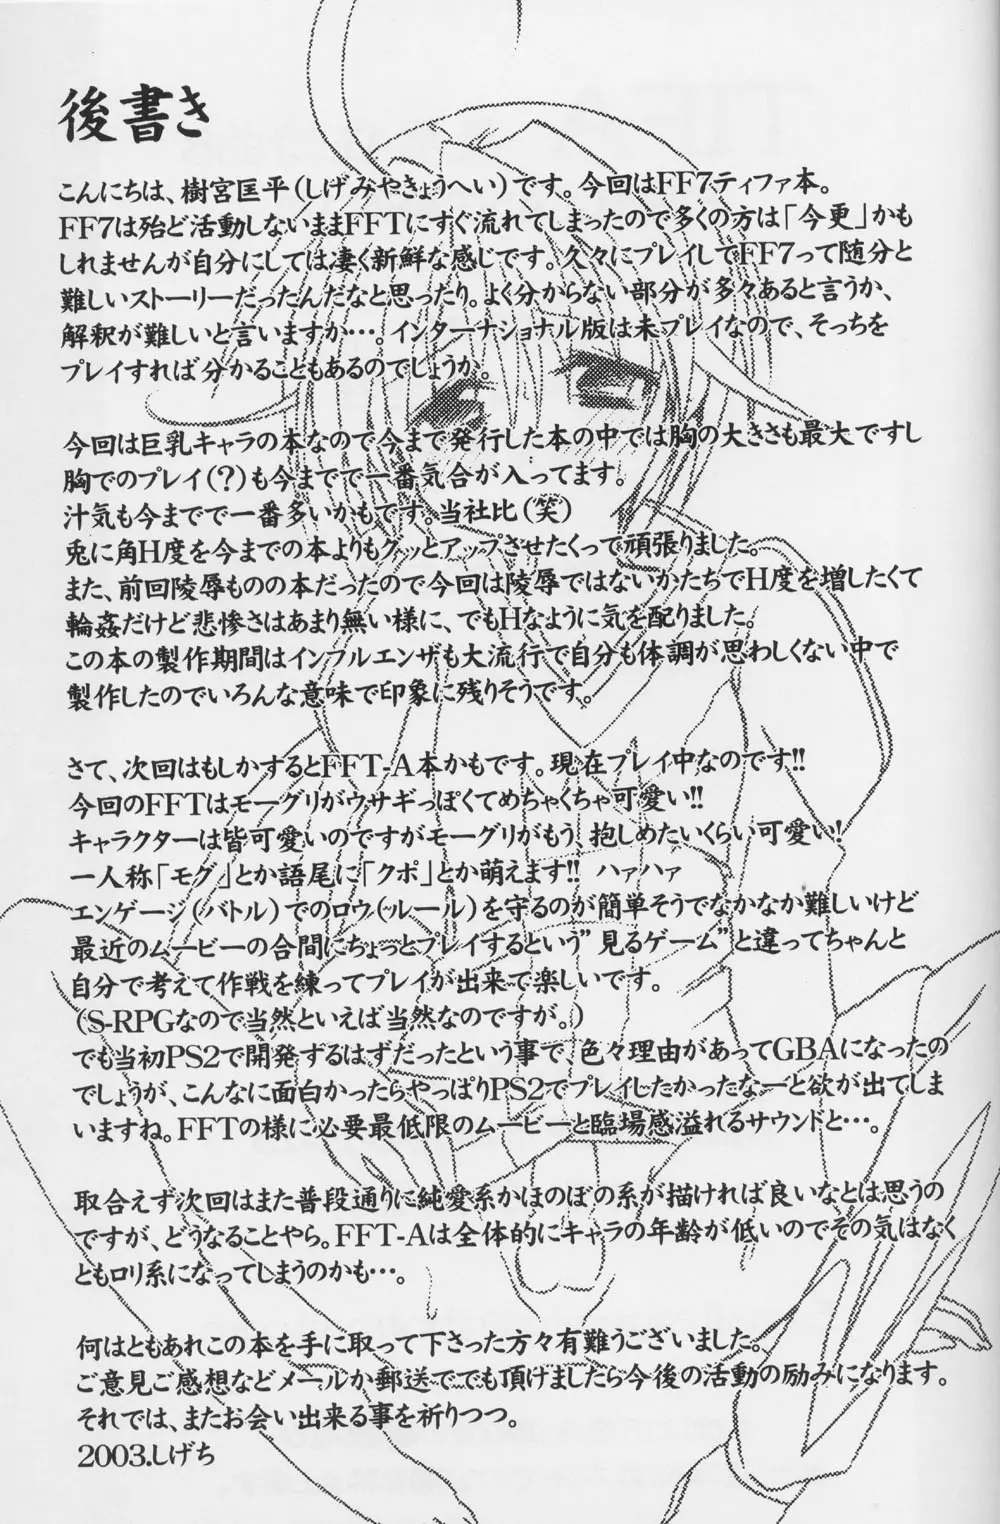 後書き
こんにちは、樹宮匡平(しげみやきょうへい)です。今回はFF7ティファ本。
FF7は殆ど活動しないままFFTにすぐ流れてしまったので多くの方は「今更」かも
しれませんが自分にしては凄く新鮮な感じです。久々にプレイしてFF7って随分と
難しいストーリーだったんだなと思ったり。よく分からない部分が多々あると言うか、
解釈が難しいと言いますか…。インターナショナル版は未プレイなので、そっちを
プレイすれば分かることもあるのでしょうか。
今回は巨乳キャラの本なので今まで発行した本の中では胸の大きさも最大ですし
胸でのプレイ(?)も今までで一番気合が入ってます。
汁気も今までで一番多いかもです。当社比(笑)
兎に角H度を今までの本よりもグッとアップさせたくって頑張りました。
また、前回陵辱ものの本だったので今回は陵辱ではないかたちでH度を増したくて
輪姦だけど悲惨さはあまり無い様に、でもHなように気を配りました。
この本の製作期間はインフルエンザも大流行で自分も体調が思わしくない中で
製作したのでいろんな意味で印象に残りそうです。
さて、次回はもしかするとFFT-A本かもです。現在プレイ中なのです!!
今回のFFTはモーグリがウサギっぽくてめちゃくちゃ可愛い!!
キャラクターは皆可愛いのですがモーグリがもう、抱しめたいくらい可愛い!
一人称「モグ」とか語尾に「クポ」とか萌えます!! ハァハァ
エンゲージ(バトル)でのロウ(ルール)を守るのが簡単そうでなかなか難しいけど
最近のムービーの合間にちょっとプレイするという"見るゲーム"と違ってちゃんと
自分で考えて作戦を練ってプレイが出来て楽しいです。
(S-RPGなので当然といえば当然なのですが。)
でも当初PS2で開発するはずだったという事で、色々理由があってGBAになったの
でしょうが、こんなに面白かったらやっぱりPS2でプレイしたかったなーと欲が出てしま
いますね。FFTの様に必要最低限のムービーと臨場感溢れるサウンドと…。
取合えず次回はまた普段通りに純愛系かほのぼの系が描ければ良いなとは思うの
ですが、どうなることやら。FFT-Aは全体的にキャラの年齢が低いのでその気はなく
ともロリ系になってしまうのかも…。
何はともあれこの本を手に取って下さった方々有難うございました。
ご意見ご感想などメールか郵送ででも頂けましたら今後の活動の励みになります。
それでは、またお会い出来る事を祈りつつ。
2003.しげち